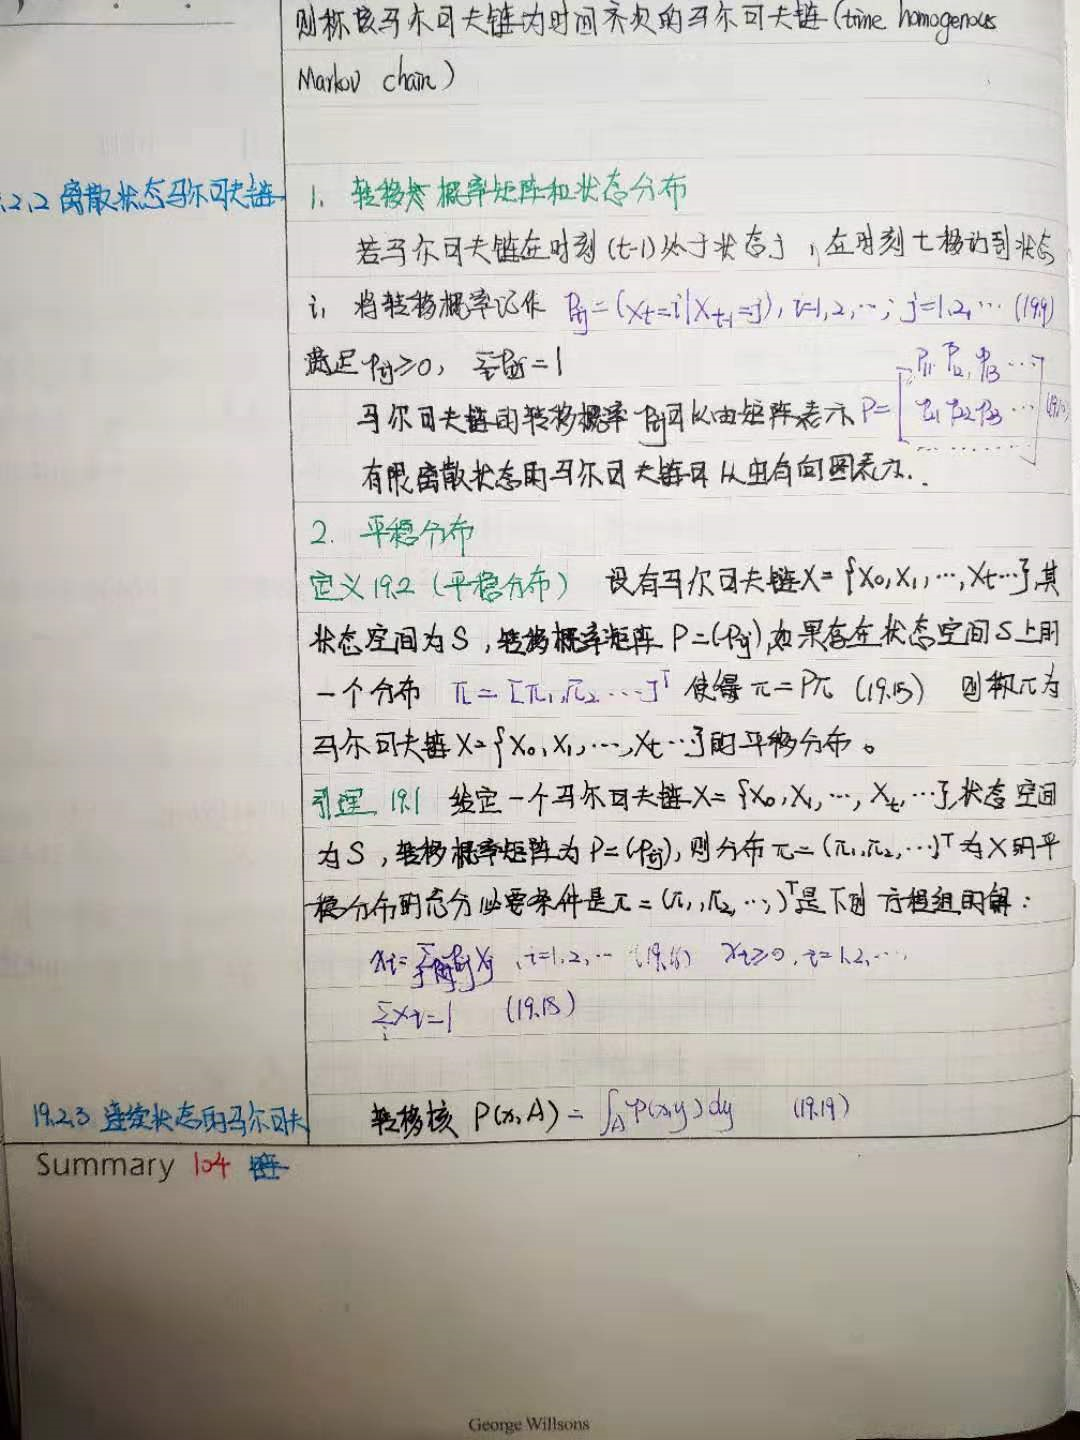 则称该马尔可夫链为时间齐次的马尔可夫链(time homogenous
Markov chain)
.2.2 离散状态马尔可夫链
1. 转移 概率矩阵和状态分布
若马尔可夫链在时刻(t-1)处于状态j,在时刻t移动到状态
i, 将转移概率记作 Pij=(Xt=i|Xt-1=j), i=1,2,…; j=1,2,… (19.9)
满足Pij≥0, ΣiPij=1
马尔可夫链的转移概率Pij可以由矩阵表示 P=[P11 P12 P13 … P21 P22 P23 … ……]
有限离散状态的马尔可夫链可以由有向图表示.
2. 平稳分布
定义19.2(平稳分布) 设有马尔可夫链X={X0,X1,…,Xt…},其
状态空间为S,转移概率矩阵 P=(Pij),如果存在状态空间S上的
一个分布 π=[π1,π2…]T 使得π=Pπ (19.15) 则称π为
马尔可夫链X={X0,X1,…,Xt…}的平移分布。
引理 19.1 给定一个马尔可夫链X={X0,X1,…,Xt,…},状态空间
为S,转移概率矩阵为P=(Pij),则分布π=(π1,π2,…)T为X的平
稳分布的充分必要条件是π=(π1,π2,…,)T是下列方程组的解:
xi=Σj Pij xj ,i=1,2,… (19.16) xi≥0,i=1,2,…,
Σi xi=1 (19.18)
19.2.3 连续状态的马尔可夫
链
转移核 P(x,A)=∫A p(x,y)dy (19.19)
Summary 104
George Willsons